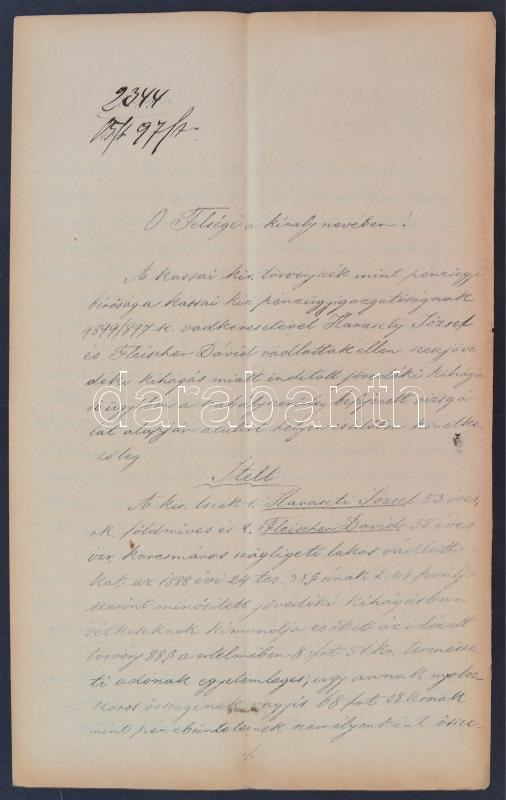 2344
97 /ft.
Ő Felsége a király nevében!
A kassai kir. törvényszék mint pénzügyi
bíróság a kassai kir. pénzügyigazgatóságnak
9899/897 sz. vádkeresetével Haraszty József
és Fleischer Dávid vádlottak ellen
miatt indított jövedéki kihágá
a befejezett vizsgá
lat alapján követke
zőleg
darabanth
Itélt
A kir. tszék 1. Haraszti József 53 éves,
rk. földmíves és 2. Fleischer Dávid 35 éves
izr. korcsmáros szögligeti lakos vádlotta-
kat az 1888 évi 24 tcz. pontja
szerint minősített jövedéki kihágásban
vétkeseknek kimondja és őket az idézett
törvény 88 § a értelmében 8 frt 51 kr.
adónak egyetemleges, úgy annak nyolcz-
szoros összegének vagyis 68 frt 08 krnak
mint pénzbüntetésnek személyenként össze-
./.